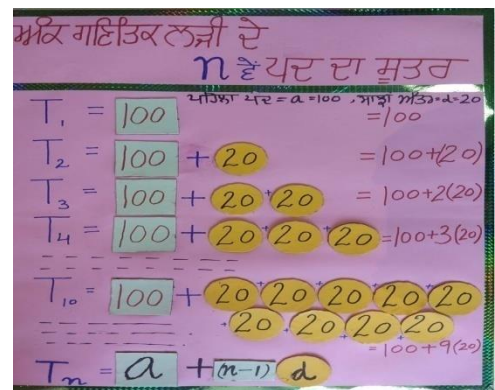 ਅੰਕ ਗਣਿਤਿਕ ਲੜੀ ਦੇ
n ਵੇਂ ਪਦ ਦਾ ਸੂਤਰ
ਪਹਿਲਾ ਪਦ = a = 100, ਸਾਂਝਾ ਅੰਤਰ = d = 20
T₁ = 100 = 100
T₂ = 100 + 20 = 100+(20)
T₃ = 100 + 20 + 20 = 100+2(20)
T₄ = 100 + 20 + 20 + 20 = 100+3(20)
T₁₀ = 100 + 20 + 20 + 20 + 20 + 20
+ 20 + 20 + 20 + 20
= 100+9(20)
Tₙ = a + (n-1) d